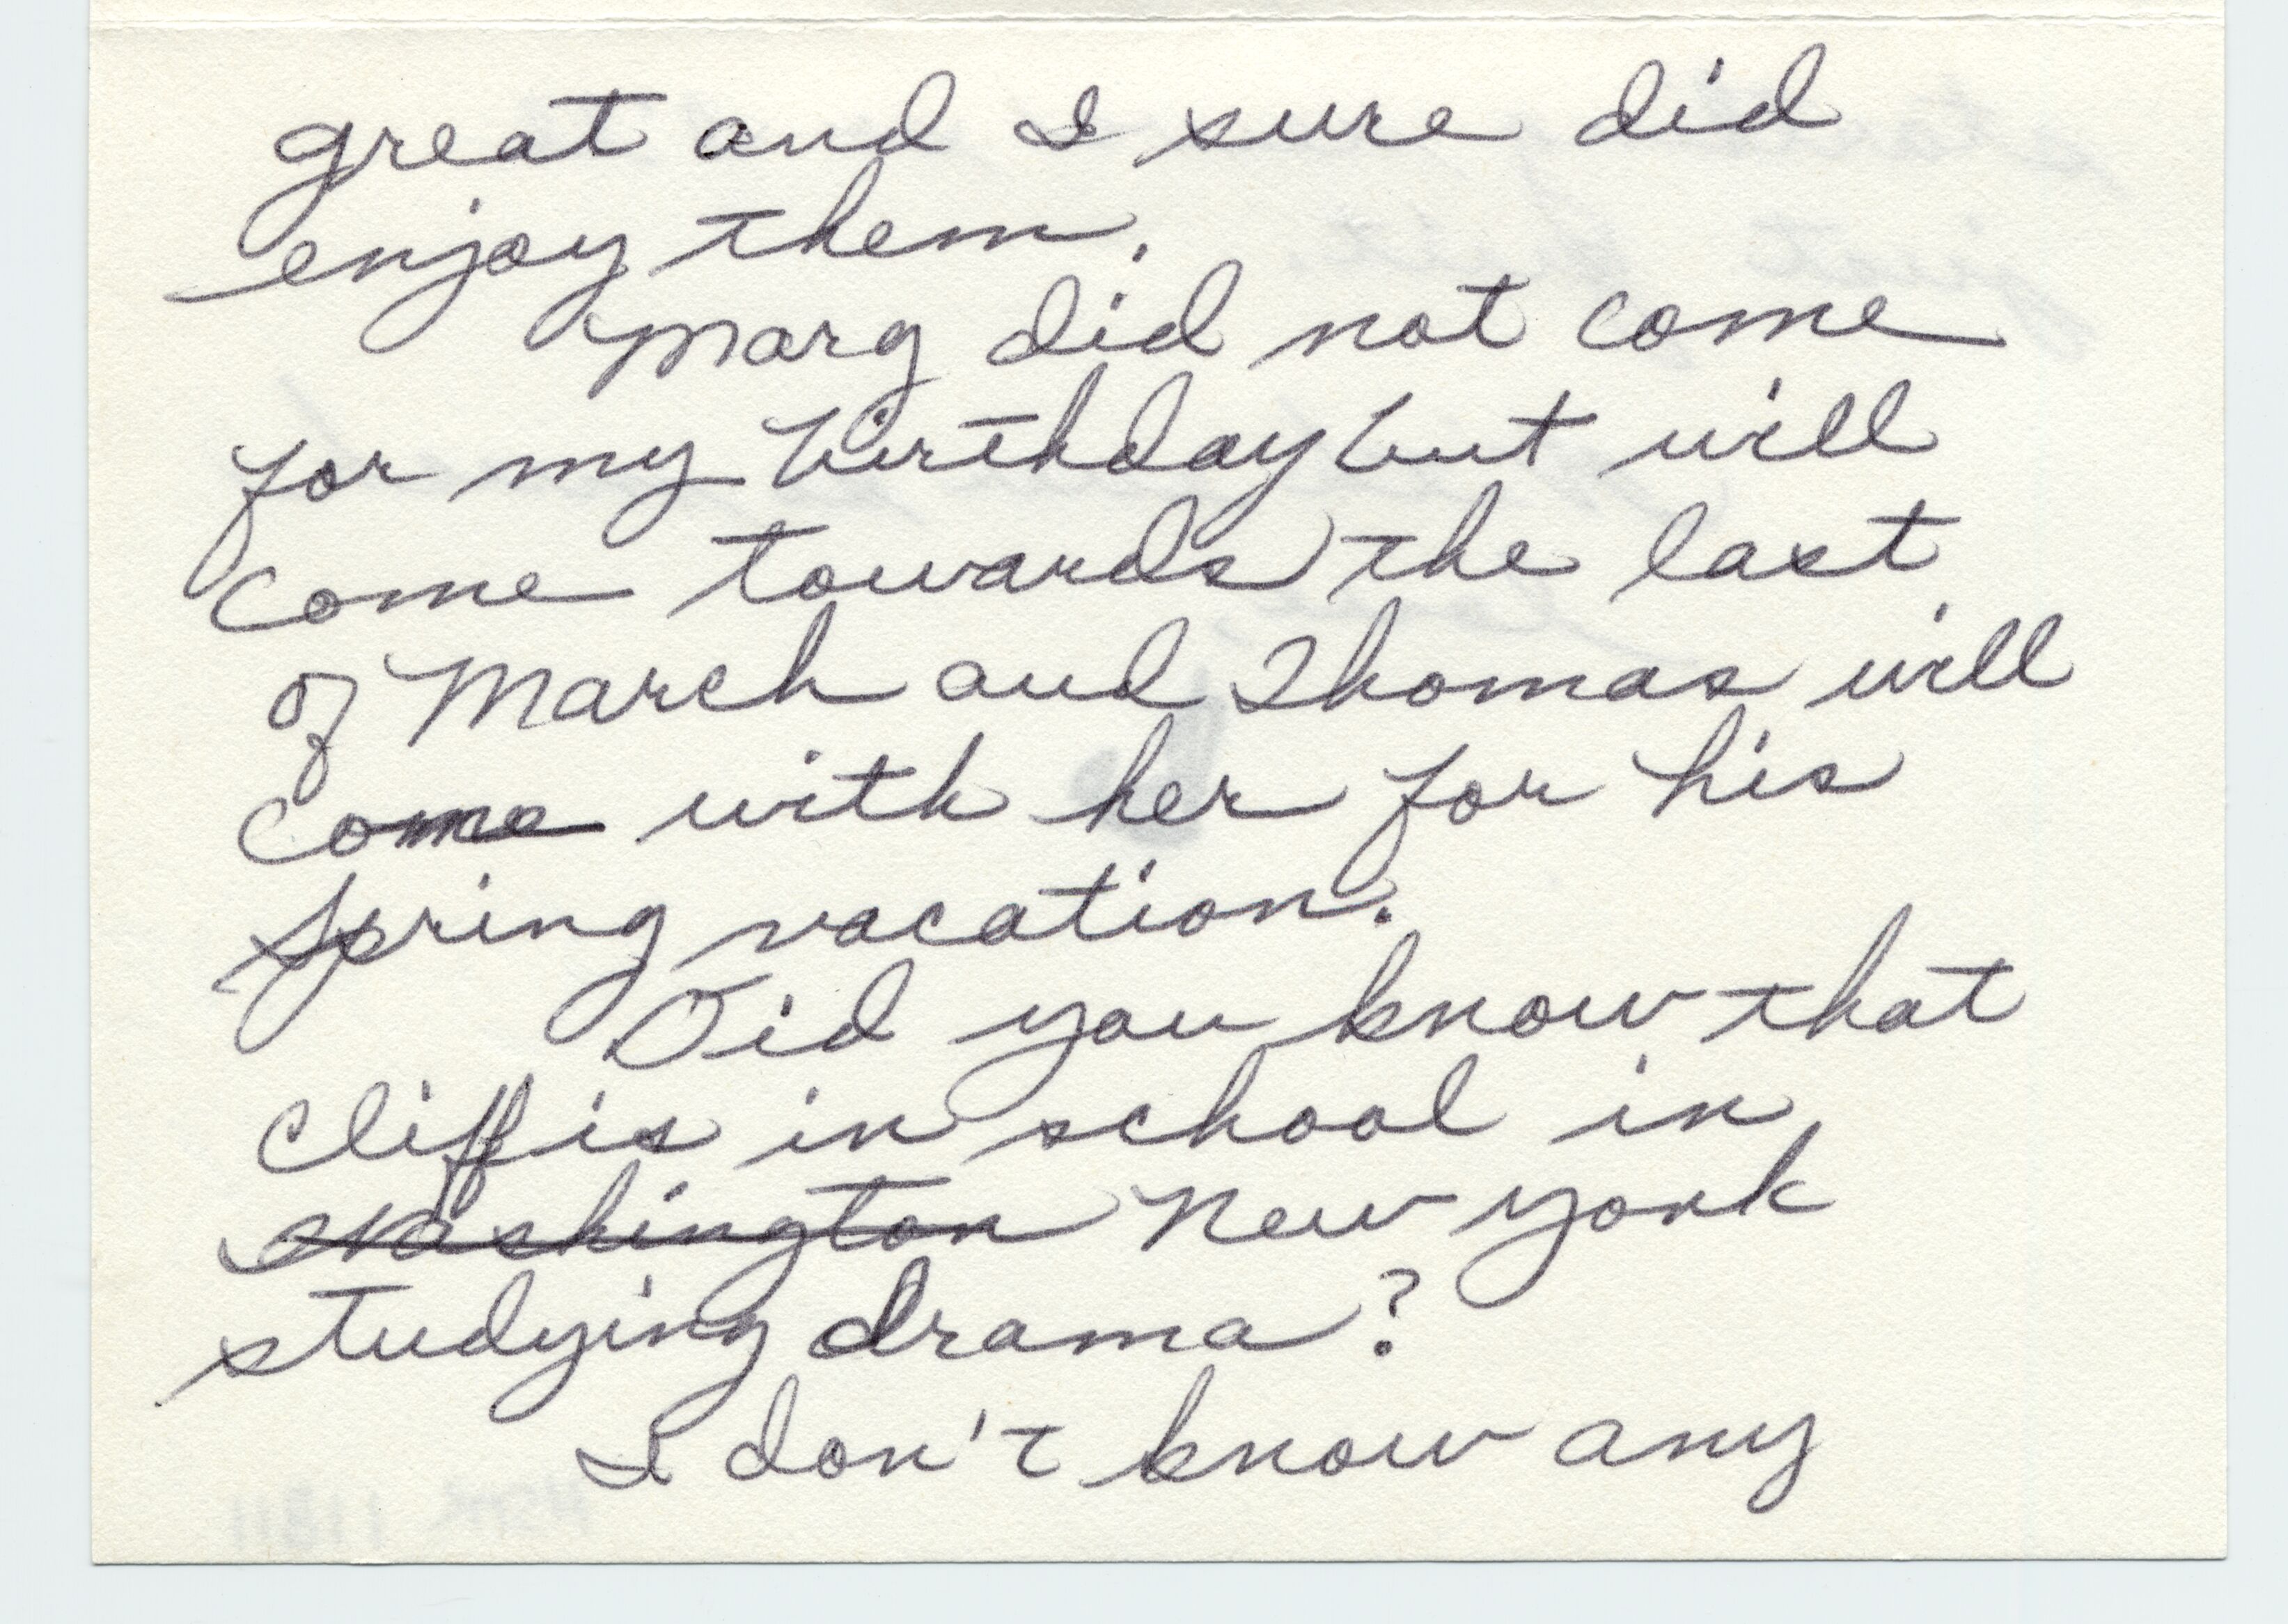 great and I sure did
enjoy them.
Marg did not come
for my birthday but will
come towards the last
of March and Thomas will
come with her for his
spring vacation.
Did you know that
Cliff is in school in
Washington New York
studying drama?
I don't know any